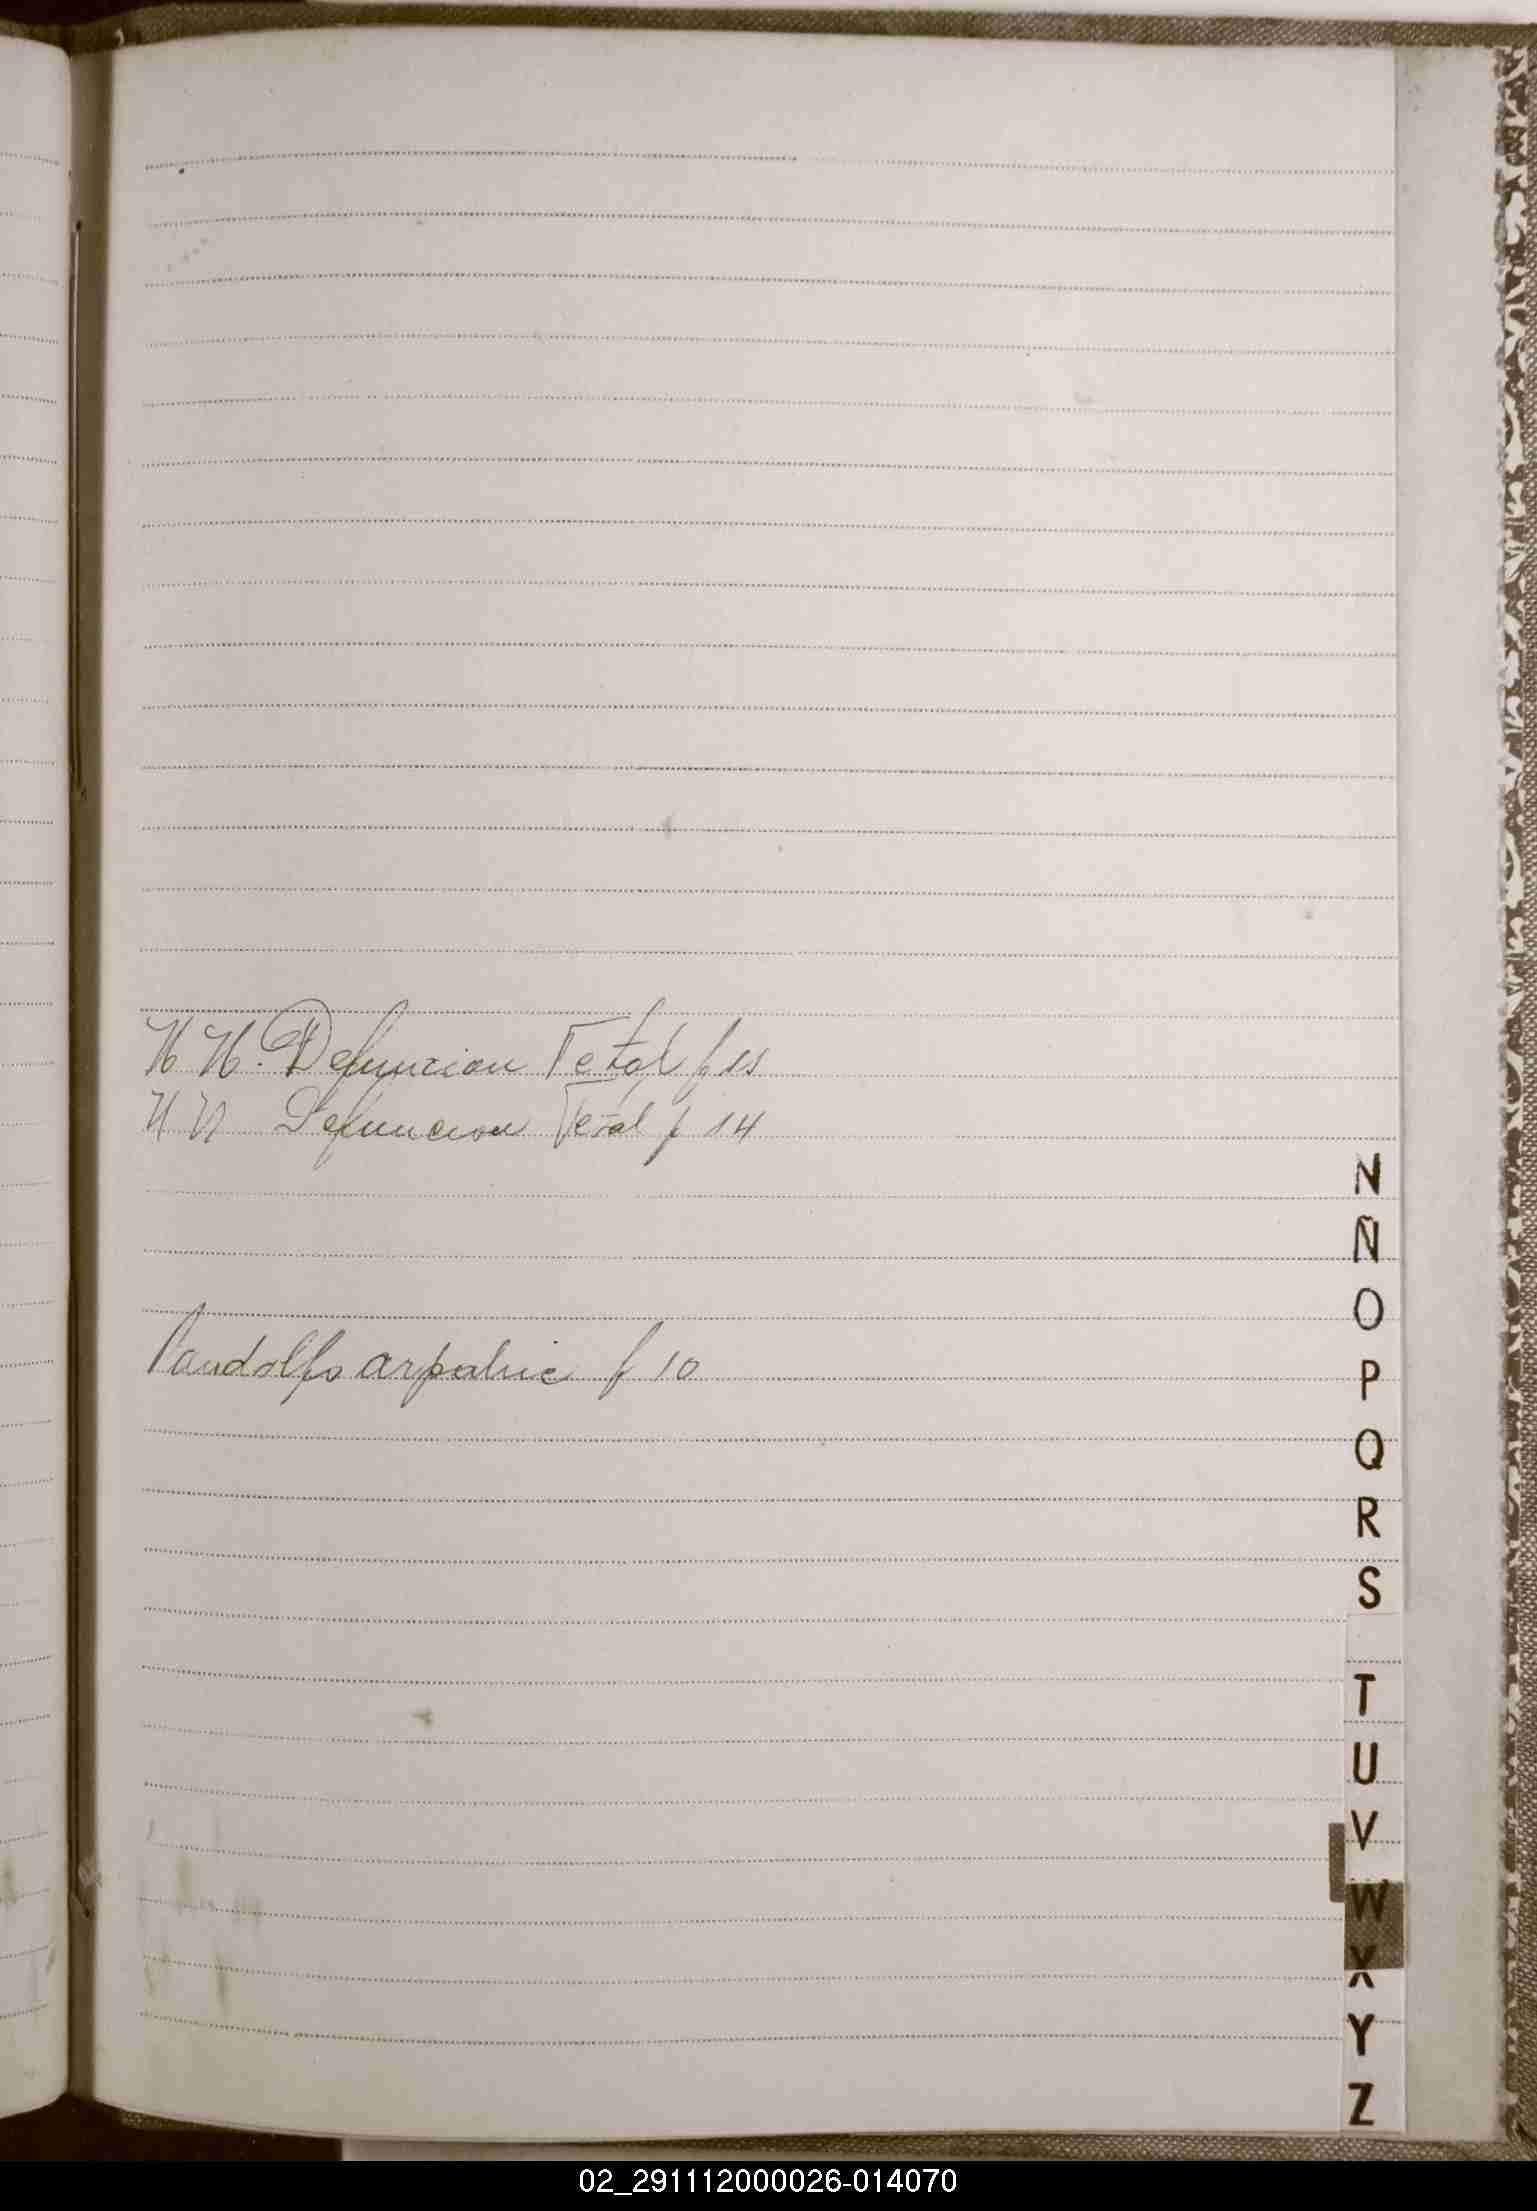 N N. Defuncion Fetal f 11
N N Defuncion Fetal f 14
N
Ñ
O
Pandolfo f 10
P
Q
R
S
T
U
V
W
X
Y
Z
02_291112000026-014070